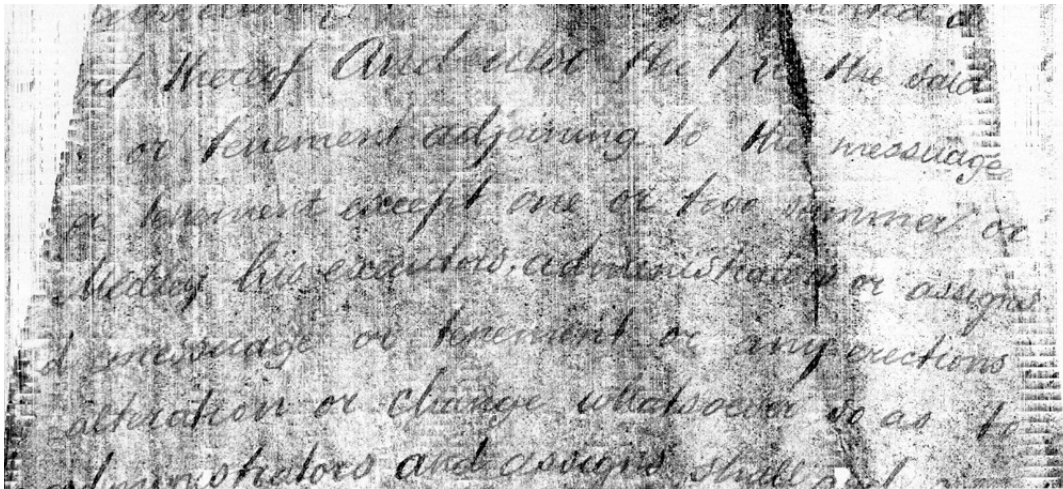 thereof And also the the said
or tenement adjoining to the messuage
or tenement except one or two summer or
Medley his executors, administrators or assigns
d messuage or tenement or any erections
alteration or change whatsoever so as to
administrators and assigns shall and